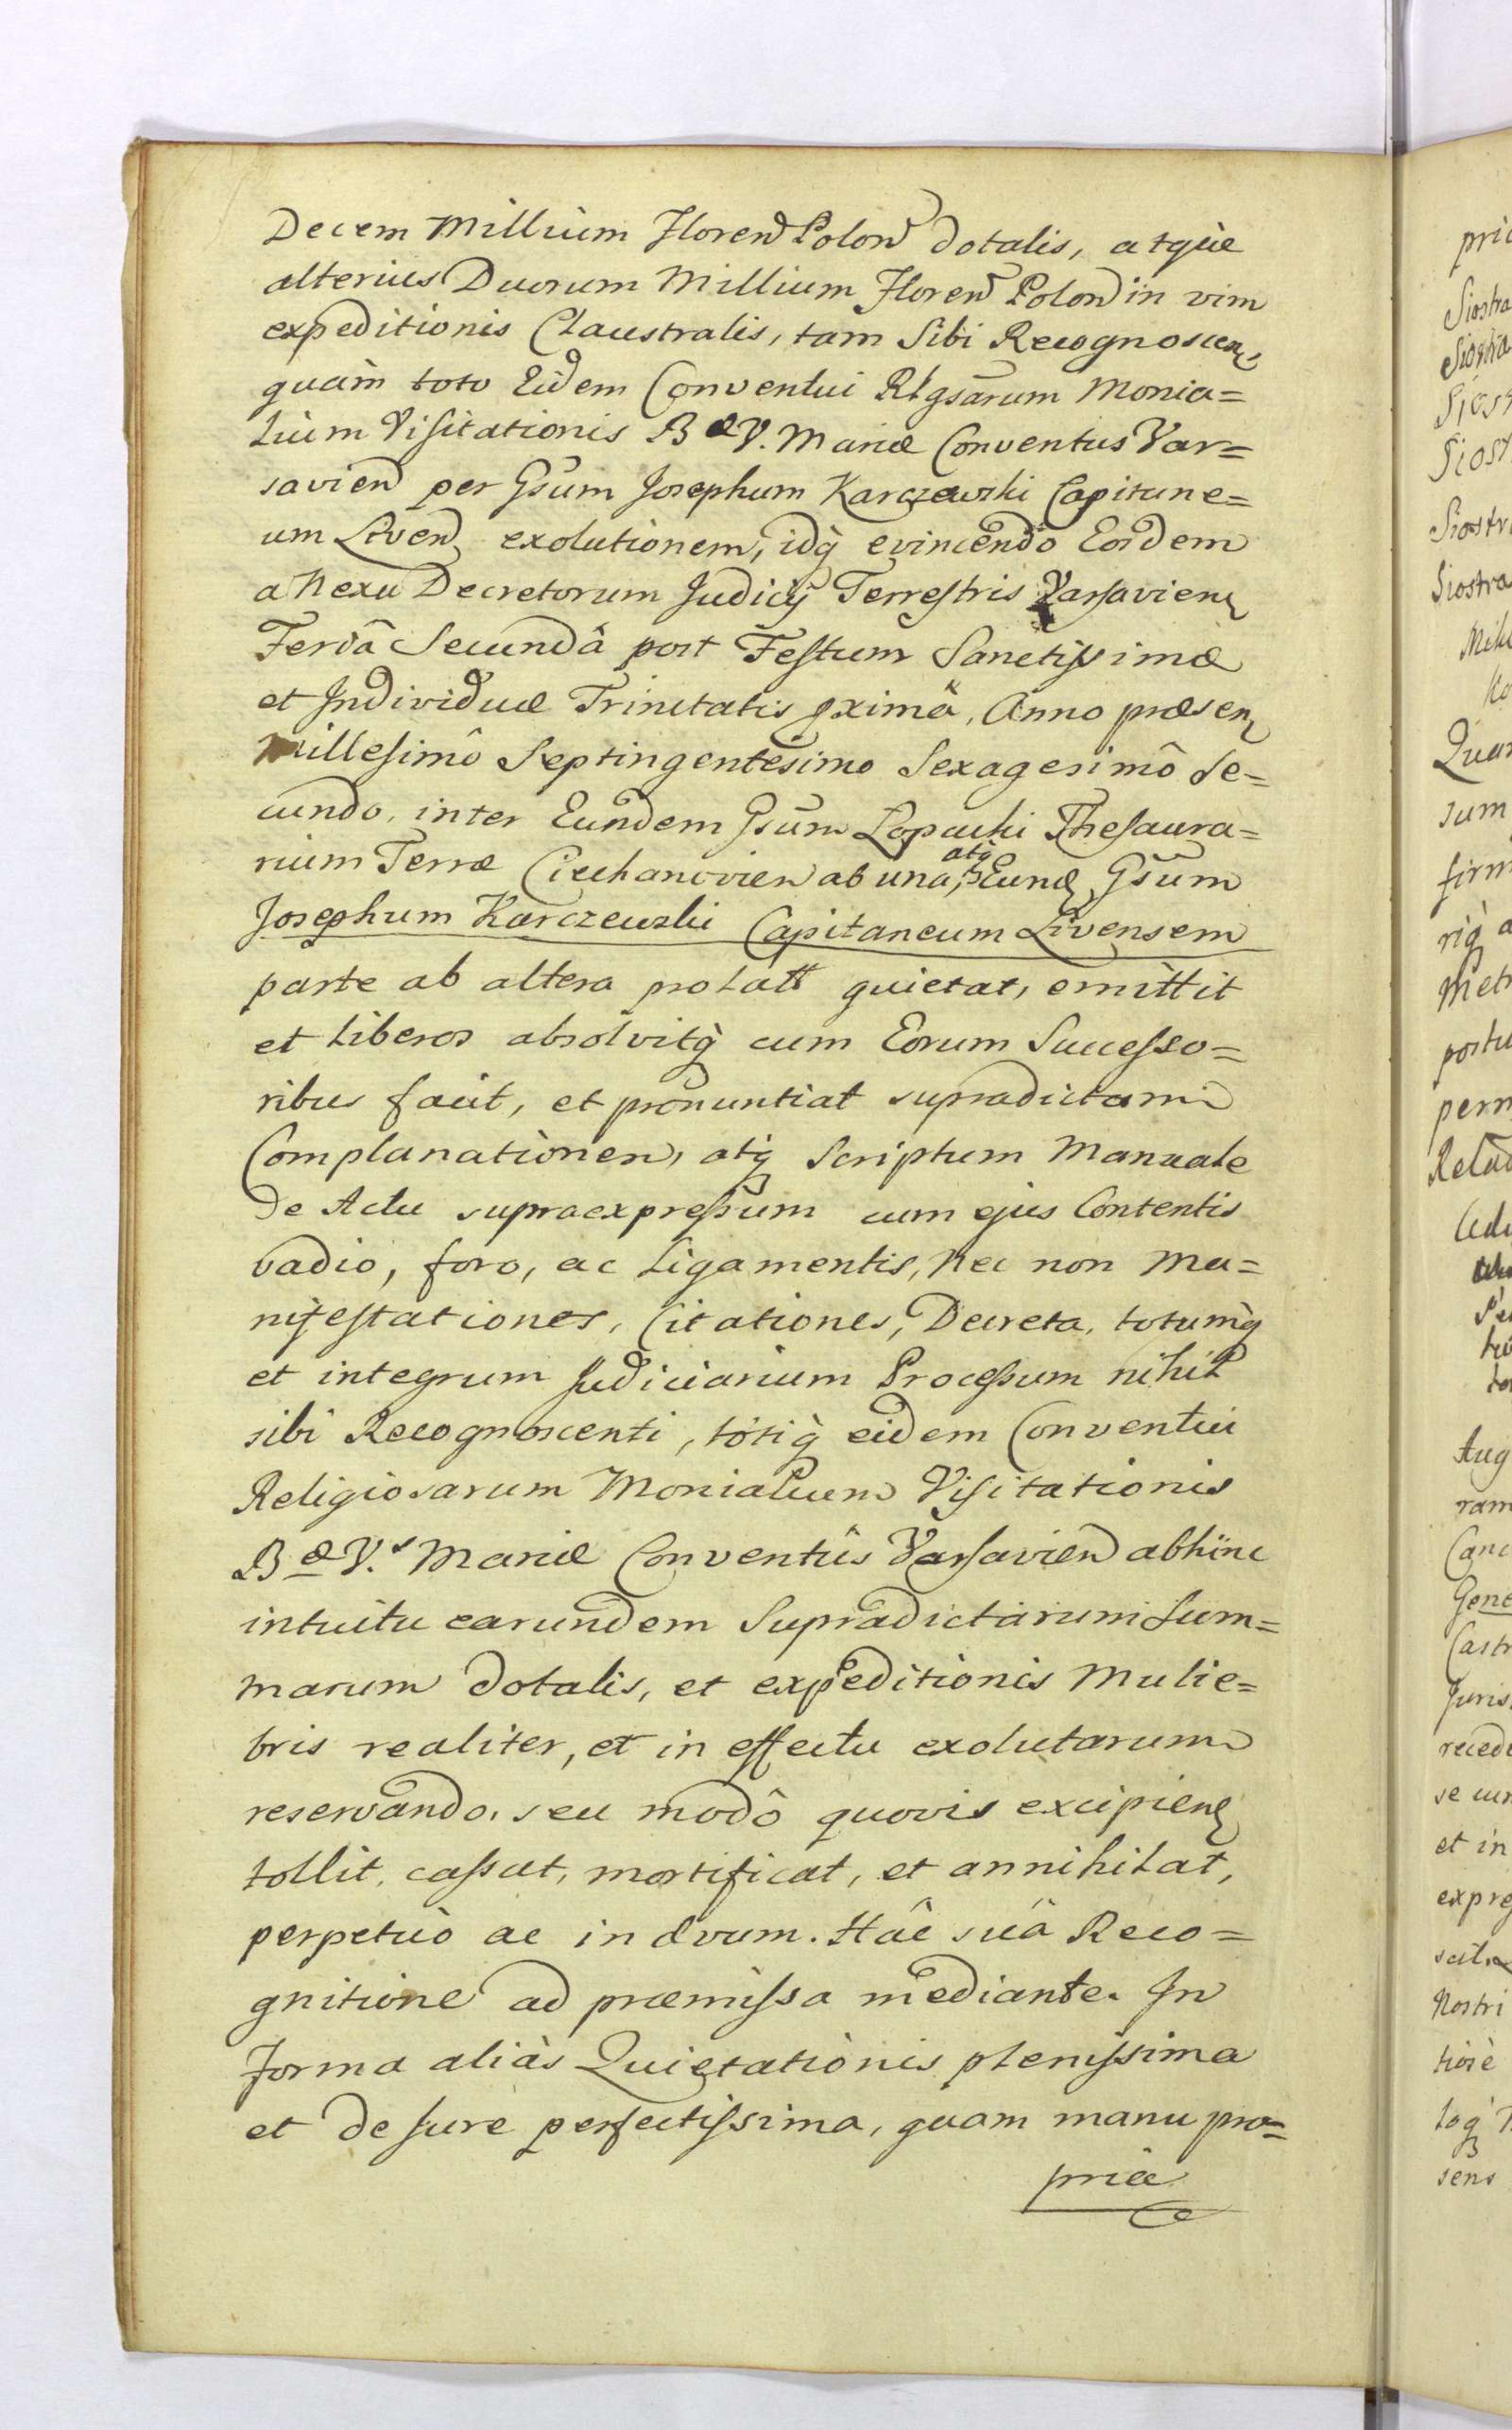 Decem Millium Floren Polon dotalis, atque
alterius Duorum Millium Floren Polon in vim
expeditionis Claustralis, tam Sibi Recognoscen
quàm toto Eidem Conventui Rlgsarum Monia=
lium Visitationis B æ V. Mariæ Conventus Var=
savien per Gsum Josephum Karczewski Capitane=
um Liven exolutionem, idq evincendo Eosdem
a Nexu Decretorum Judicij Terrestris Varsavien
Feria Secundâ post Festum Sanctissimæ
et Individuæ Trinitatis pximâ, Anno præsen
Millesimô Septingentesimo Sexagesimô Se=
cundo, inter Eundem Gsum Lopacki Thesaura=
rium Terræ Ciechanovien ab una, atq Eund Gsum
Josephum Karczewski Capitaneum Livensem
parte ab altera prolatt quietat, emittit
et liberos absolvitq cum Eorum Successo=
ribus facit, et pronuntiat supradictam
Complanationem, atq Scriptum Manuale
de Actu supraexpressum cum ejus Contentis
vadio, foro, ac Ligamentis, Nec non Ma=
nifestationes, Citationes, Decreta, totumq
et integrum Judiciarium Processum nihil
sibi Recognoscenti, totiq eidem Conventui
Religiosarum Monialium Visitationis
B æ V. Mariæ Conventûs Varsavien abhinc
intuitu earundem Supradictarum Sum=
marum dotalis, et expeditionis Mulie=
bris realiter, et in effectu exolutarum
reservando, seu modô quovis excipien
tollit, cassat, mortificat, et annihilat,
perpetuò ac in ævum. Hâc suâ Reco=
gnitione ad præmissa mediante. In
forma aliàs Quietationis plenissima
et de Jure perfectissima, quam manu pro=
pria
Siostra
Siostra
Siostra
sum
Aug
Nostri
sens